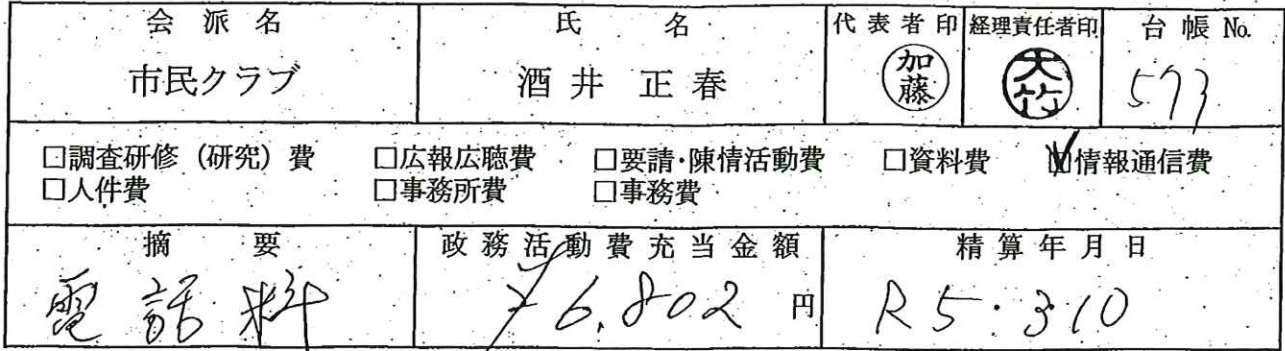 会派名 氏名 代表者印 経理責任者印 台帳No.
市民クラブ 酒井正春 加藤 大竹 573
□調査研修（研究）費 □広報広聴費 □要請・陳情活動費 □資料費 ☑情報通信費
□人件費 □事務所費 □事務費
摘要 政務活動費充当金額 精算年月日
電話料 ¥6,802円 R5.3.10